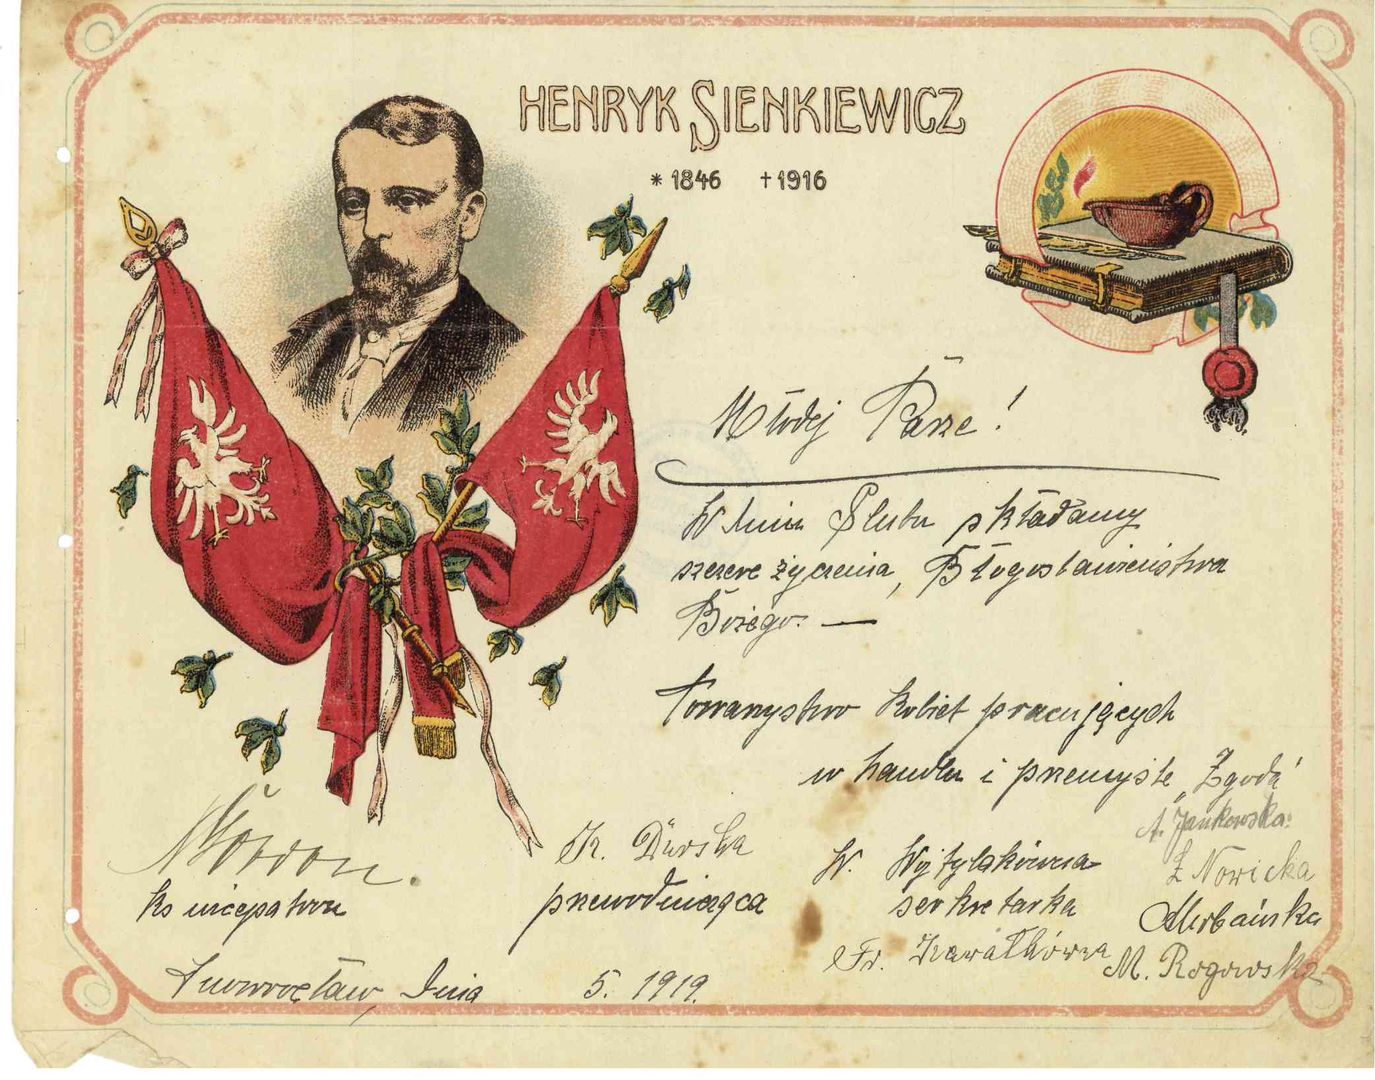 HENRYK SIENKIEWICZ
* 1846 † 1916
Młodej Parze!
W dniu Ślubu składamy
szczere życzenia, Błogosławieństwa
Bożego. —
Towarzystwo kobiet pracujących
w handlu i przemyśle „Zgoda"
A. Jankowska
K. Durska
W. Wojtylakówna
Z Nowicka
ks wicepatron
przewodnicząca
sekretarka
Urbańska
Fr.
M. Rogowska
Inowrocław, dnia 5. 1919.